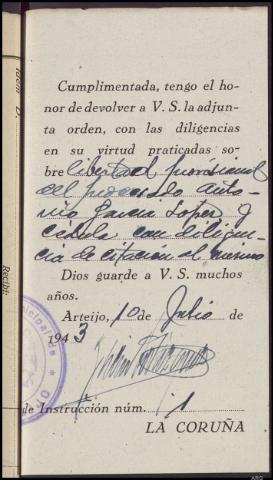 Cumplimentada, tengo el ho-
nor de devolver a V. S. la adjun-
ta orden, con las diligencias
en su virtud praticadas so-
bre libertad provisional
del procesado Anto-
nio Garcia Lopez y
cédula con diligen-
cia de citación al mismo
Dios guarde a V. S. muchos
años.
Arteijo, 10 de Julio de
1943
de Instrucción núm. 1
LA CORUÑA
Recibí: